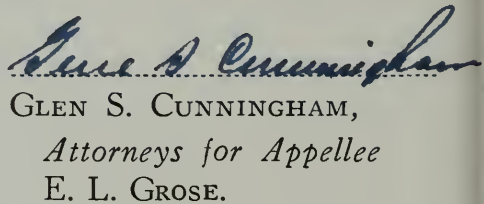 Gene S Cunningham
GLEN S. CUNNINGHAM,
Attorneys for Appellee
E. L. GROSE.